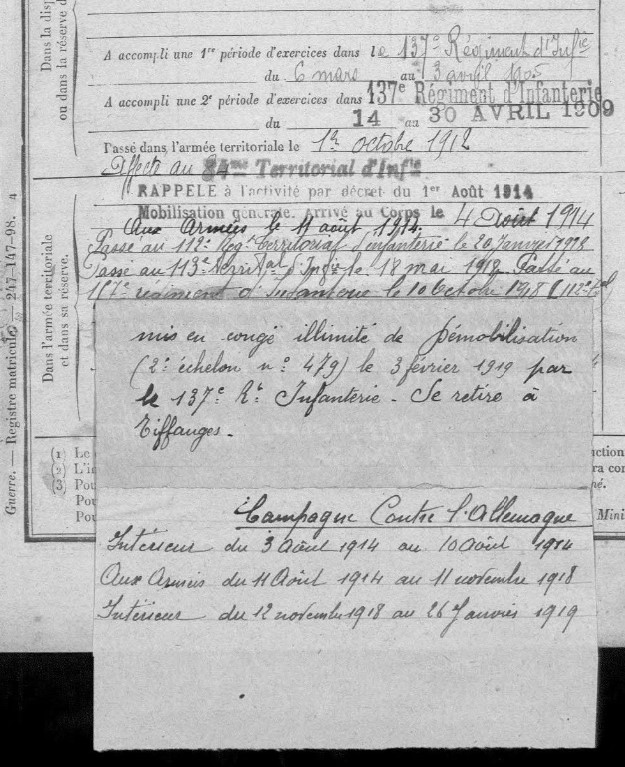 Dans la disp
ou dans la réserve d
A accompli une 1re période d'exercices dans le 137e Régiment d'Infie
du 6 mars au 3 avril 1905
A accompli une 2e période d'exercices dans 137e Régiment d'Infanterie
du 14 au 30 AVRIL 1909
Passé dans l'armée territoriale le 1er octobre 1912
Affecté au 84me Territorial d'Infie
RAPPELÉ à l'activité par décret du 1er Août 1914
Mobilisation générale. Arrivé au Corps le 4 Août 1914
Aux Armées le 11 août 1914.
Passé au 112e Régt Territorial d'infanterie le 20 Janvier 1918
Passé au 113e Territal d'Infie le 18 mai 1918. Passé au
117e régiment d'Infanterie le 10 Octobre 1918
Dans l'armée territoriale
et dans sa réserve.
Guerre. — Registre matricule. — 247-147-98. 4
mis en congé illimité de Démobilisation
(2e échelon no 479) le 3 février 1919 par
le 137e Rt Infanterie - Se retire à
Tiffauges.
(1) Le
(2) L'i
(3) Pou
Pou
Pou
uction
ra con
né.
Mini
Campagne Contre l'Allemagne
Intérieur du 3 Août 1914 au 10 Août 1914
Aux Armées du 11 Août 1914 au 11 novembre 1918
Intérieur du 12 novembre 1918 au 26 Janvier 1919